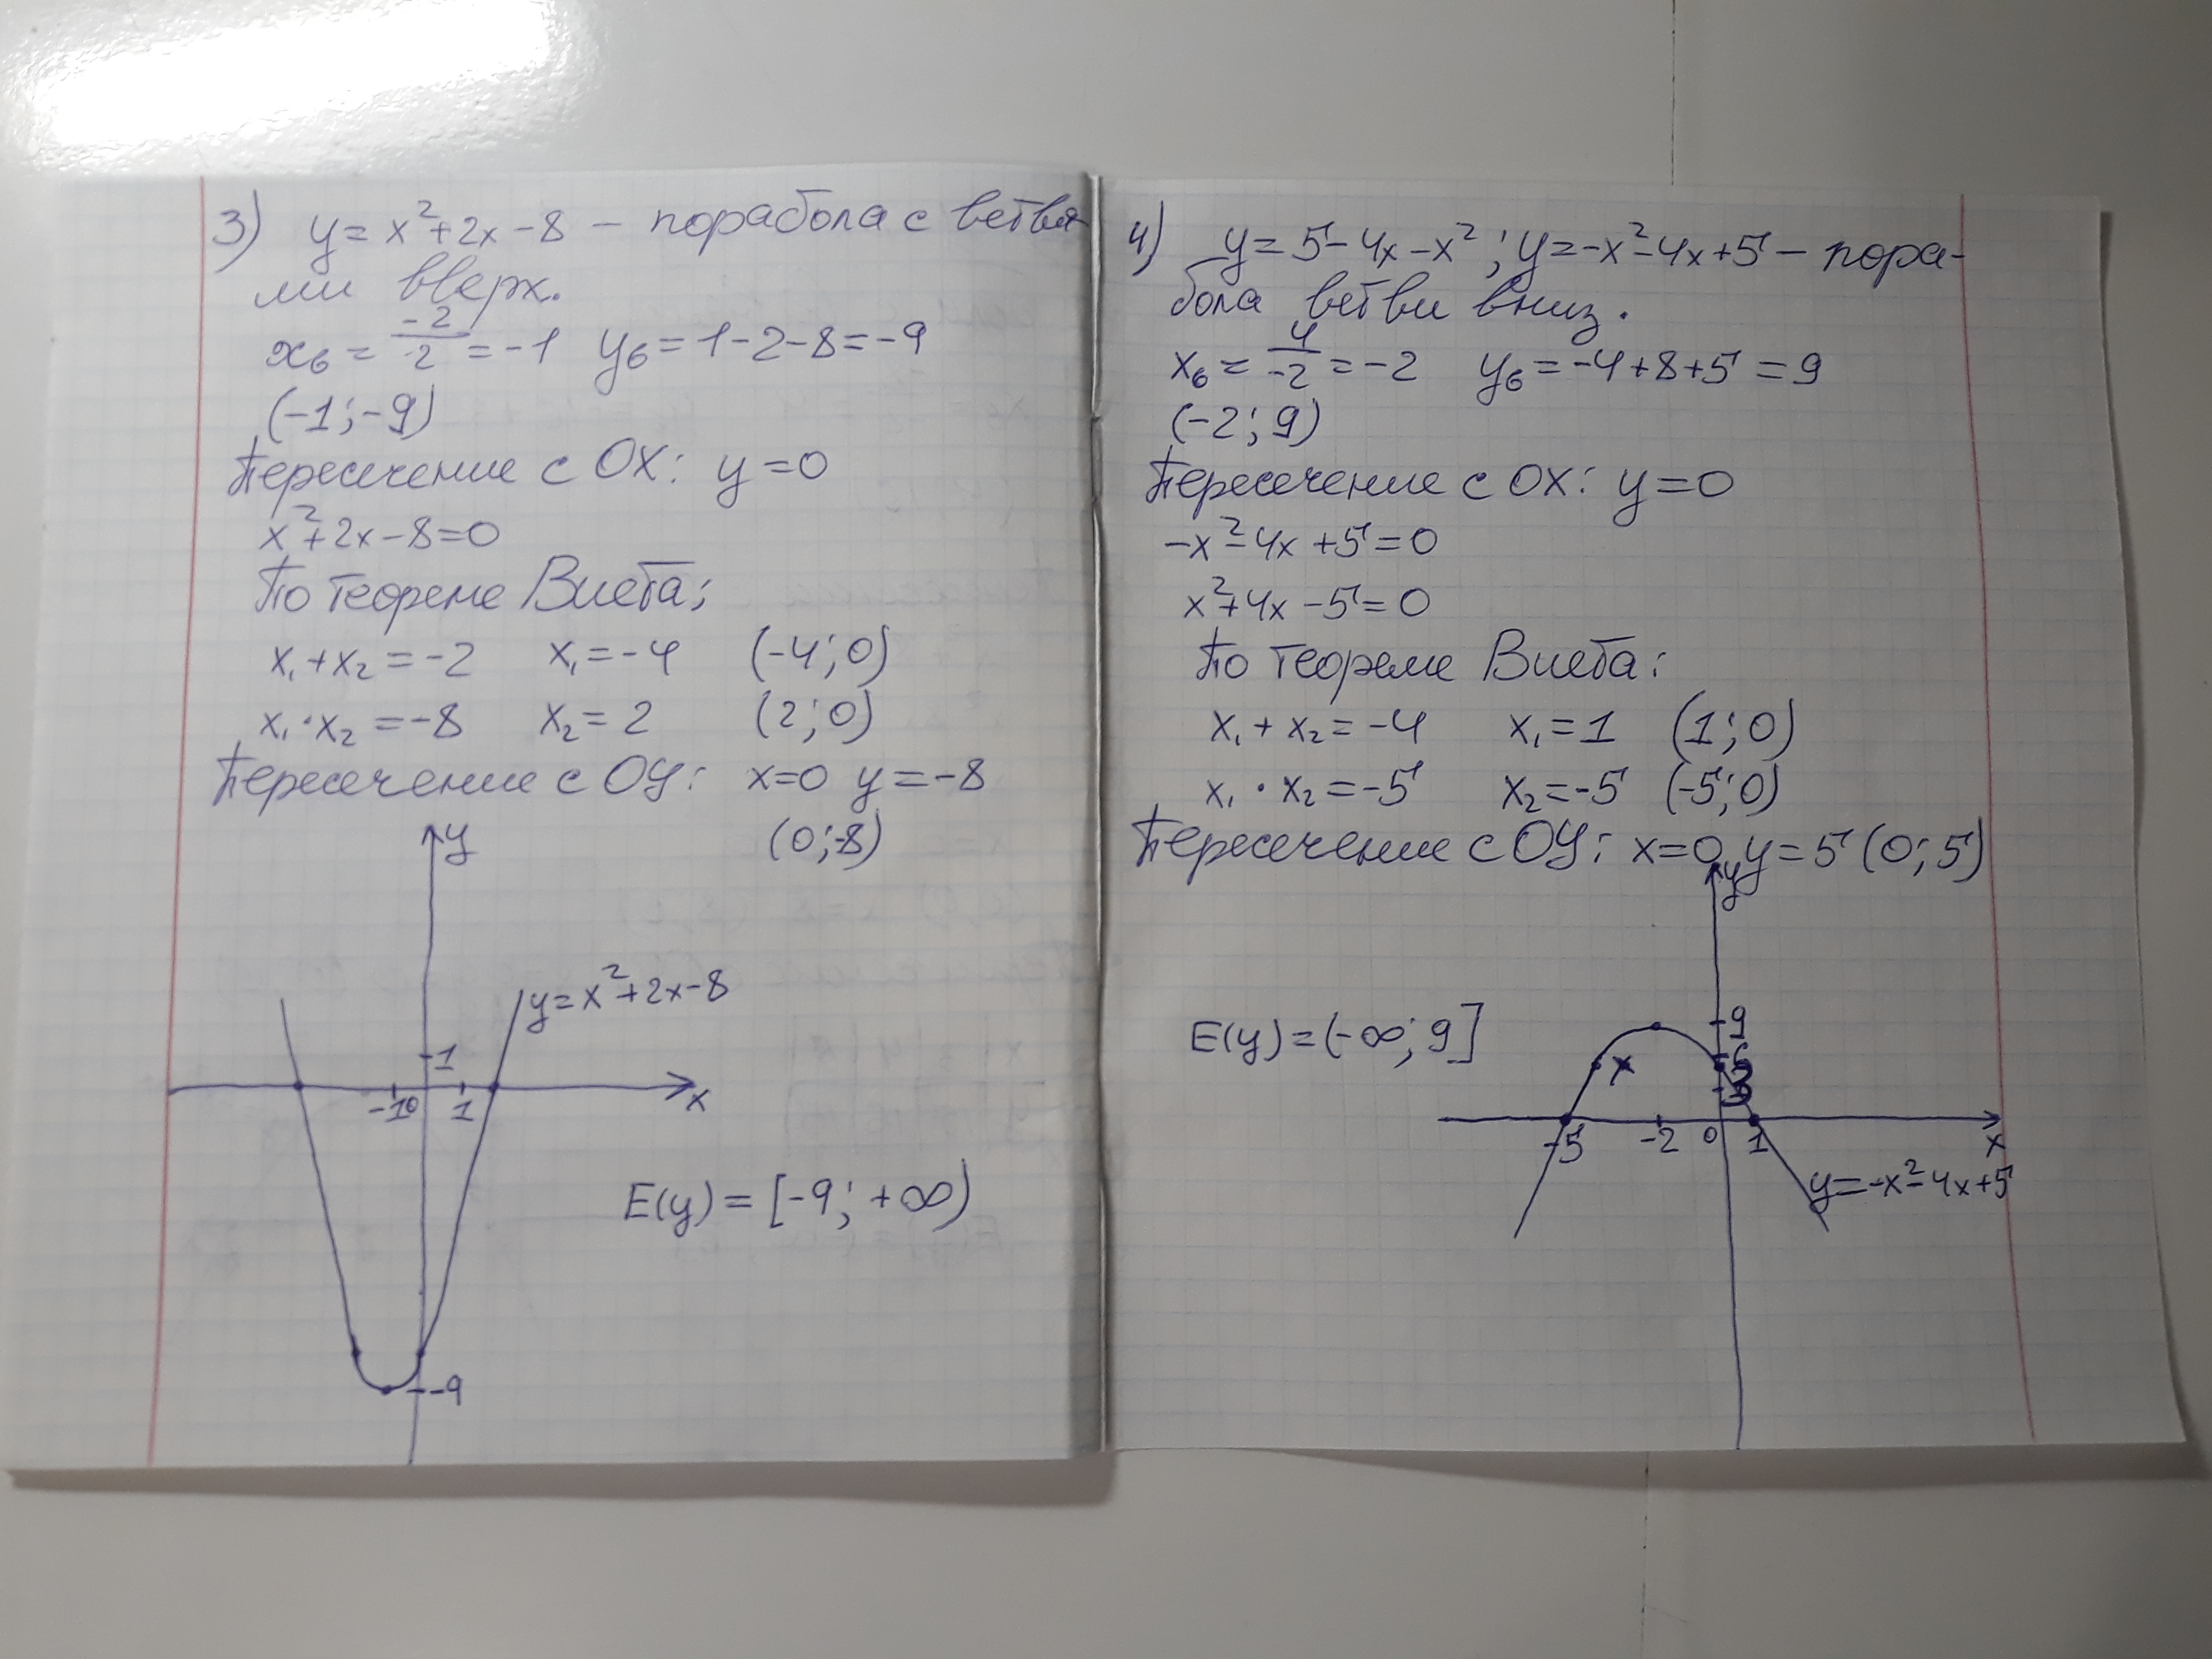 3) y = x²+2x-8 - порабола с ветвя
ми вверх.
xв = -2/2 = -1 yв = 1-2-8 = -9
(-1; -9)
Пересечение с OX: y = 0
x²+2x-8=0
По теореме Виета:
x₁+x₂ = -2 x₁ = -4 (-4; 0)
x₁·x₂ = -8 x₂ = 2 (2; 0)
Пересечение с OY: x=0 y = -8
(0; -8)
y
y = x²+2x-8
1
-1 0 1 x
E(y) = [-9; +∞)
-9
4) y = 5-4x-x²; y = -x²-4x+5 - пора-
бола ветви вниз.
xв = 4/-2 = -2 yв = -4+8+5 = 9
(-2; 9)
Пересечение с OX: y = 0
-x²-4x+5=0
x²+4x-5=0
По теореме Виета:
x₁ + x₂ = -4 x₁ = 1 (1; 0)
x₁ · x₂ = -5 x₂ = -5 (-5; 0)
Пересечение с OY: x=0, y = 5 (0; 5)
y
E(y) = (-∞; 9]
9
-5 -2 0 1 x
y = -x²-4x+5